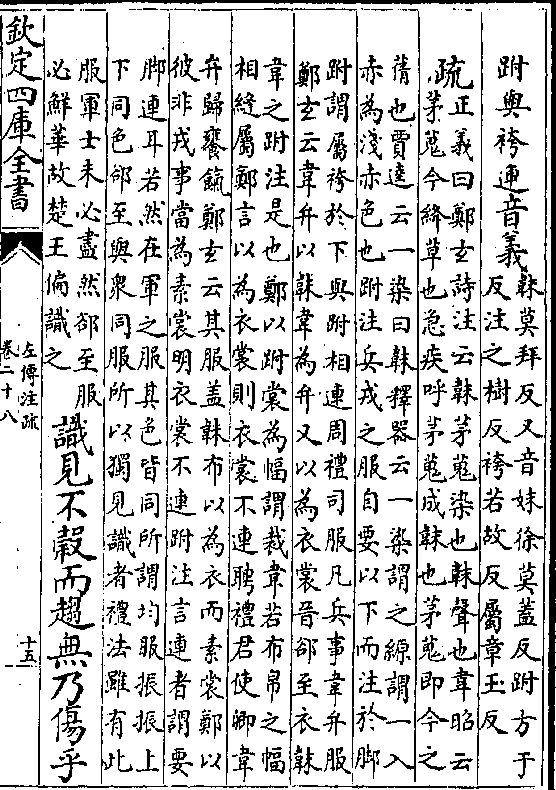 跗與袴連音義韎莫拜反又音妹徐莫蓋反跗方于
反注之樹反袴若故反屬章玉反
疏正義曰鄭玄詩注云韎茅蒐染也韎聲也韋昭云
茅蒐今絳草也急疾呼茅蒐成韎也茅蒐即今之
蒨也賈逵云一染曰韎釋器云一染謂之縓謂一入
赤為淺赤色也跗注兵戎之服自要以下而注於脚
跗謂屬袴於下與跗相連周禮司服凡兵事韋弁服
鄭玄云韋弁以韎韋為弁又以為衣裳晉郤至衣韎
韋之跗注是也鄭以跗裳為幅謂裁韋若布帛之幅
相縫屬鄭言以為衣裳則衣裳不連聘禮君使卿韋
弁歸饔餼鄭玄云其服蓋韎布以為衣而素裳鄭以
彼非戎事當為素裳明衣裳不連跗注言連者謂要
脚連耳若然在軍之服其色皆同所謂均服振振上
下同色郤至與衆同服所以獨見識者禮法雖有此
服軍士未必盡然郤至服
必鮮華故楚王偏識之
識見不穀而趨無乃傷乎
欽定四庫全書
左傳注疏
卷二十八
十五